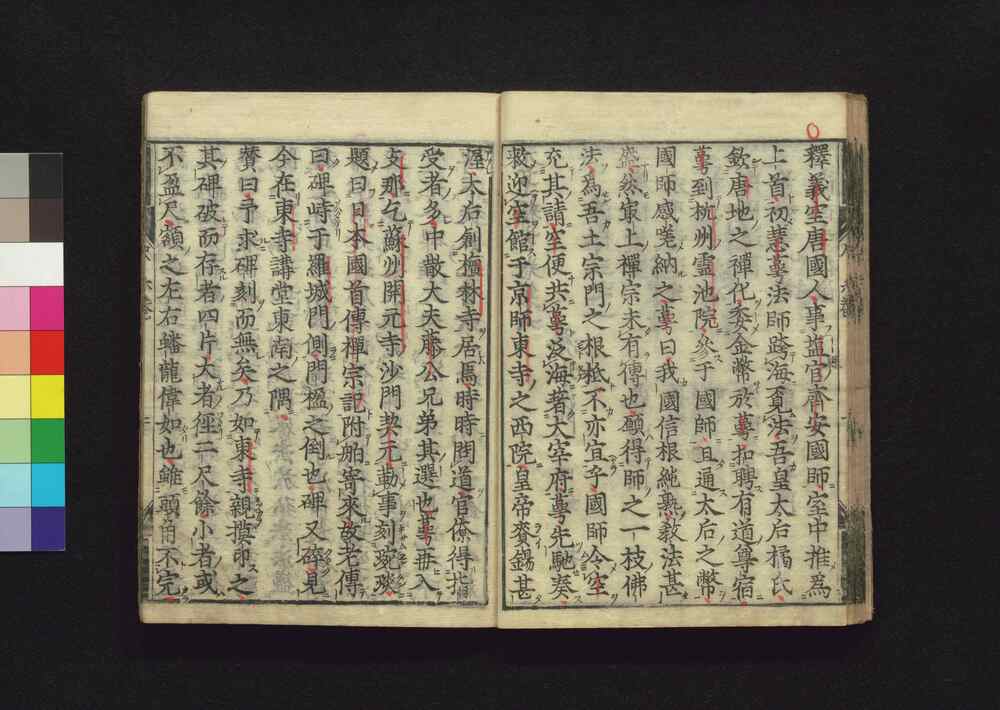 釋義空唐國人事塩官齊安國師室中推爲
上首初慧萼法師跨海覓法吾皇太后橘氏
欽唐地之禪化委金幣於萼扣聘有道尊宿
萼到杭州靈池院參于國師且通太后之幣
國師感嗟納之萼曰我國信根純熟敎法甚
盛然最上禪宗未有傳也願得師之一枝佛
法爲吾土宗門之根柢不亦宜乎國師令空
充其請空便共萼泛海著大宰府萼先馳奏
敕迎空館于京師東寺之西院皇帝賚錫甚
渥太后創檀林寺居焉時時問道官僚得指
受者多中散大夫藤公兄弟其選也萼再入
支那乞蘇州開元寺沙門契元勒事刻琬琰
題曰日本國首傳禪宗記附舶寄來故老傳
曰碑峙于羅城門側門楹之倒也碑又碎見
今在東寺講堂東南之隅
贊曰予求碑刻而無矣乃如東寺親摸印之
其碑破而存者四片大者徑二尺餘小者或
不盈尺額之左右蟠龍偉如也雖頭角不完